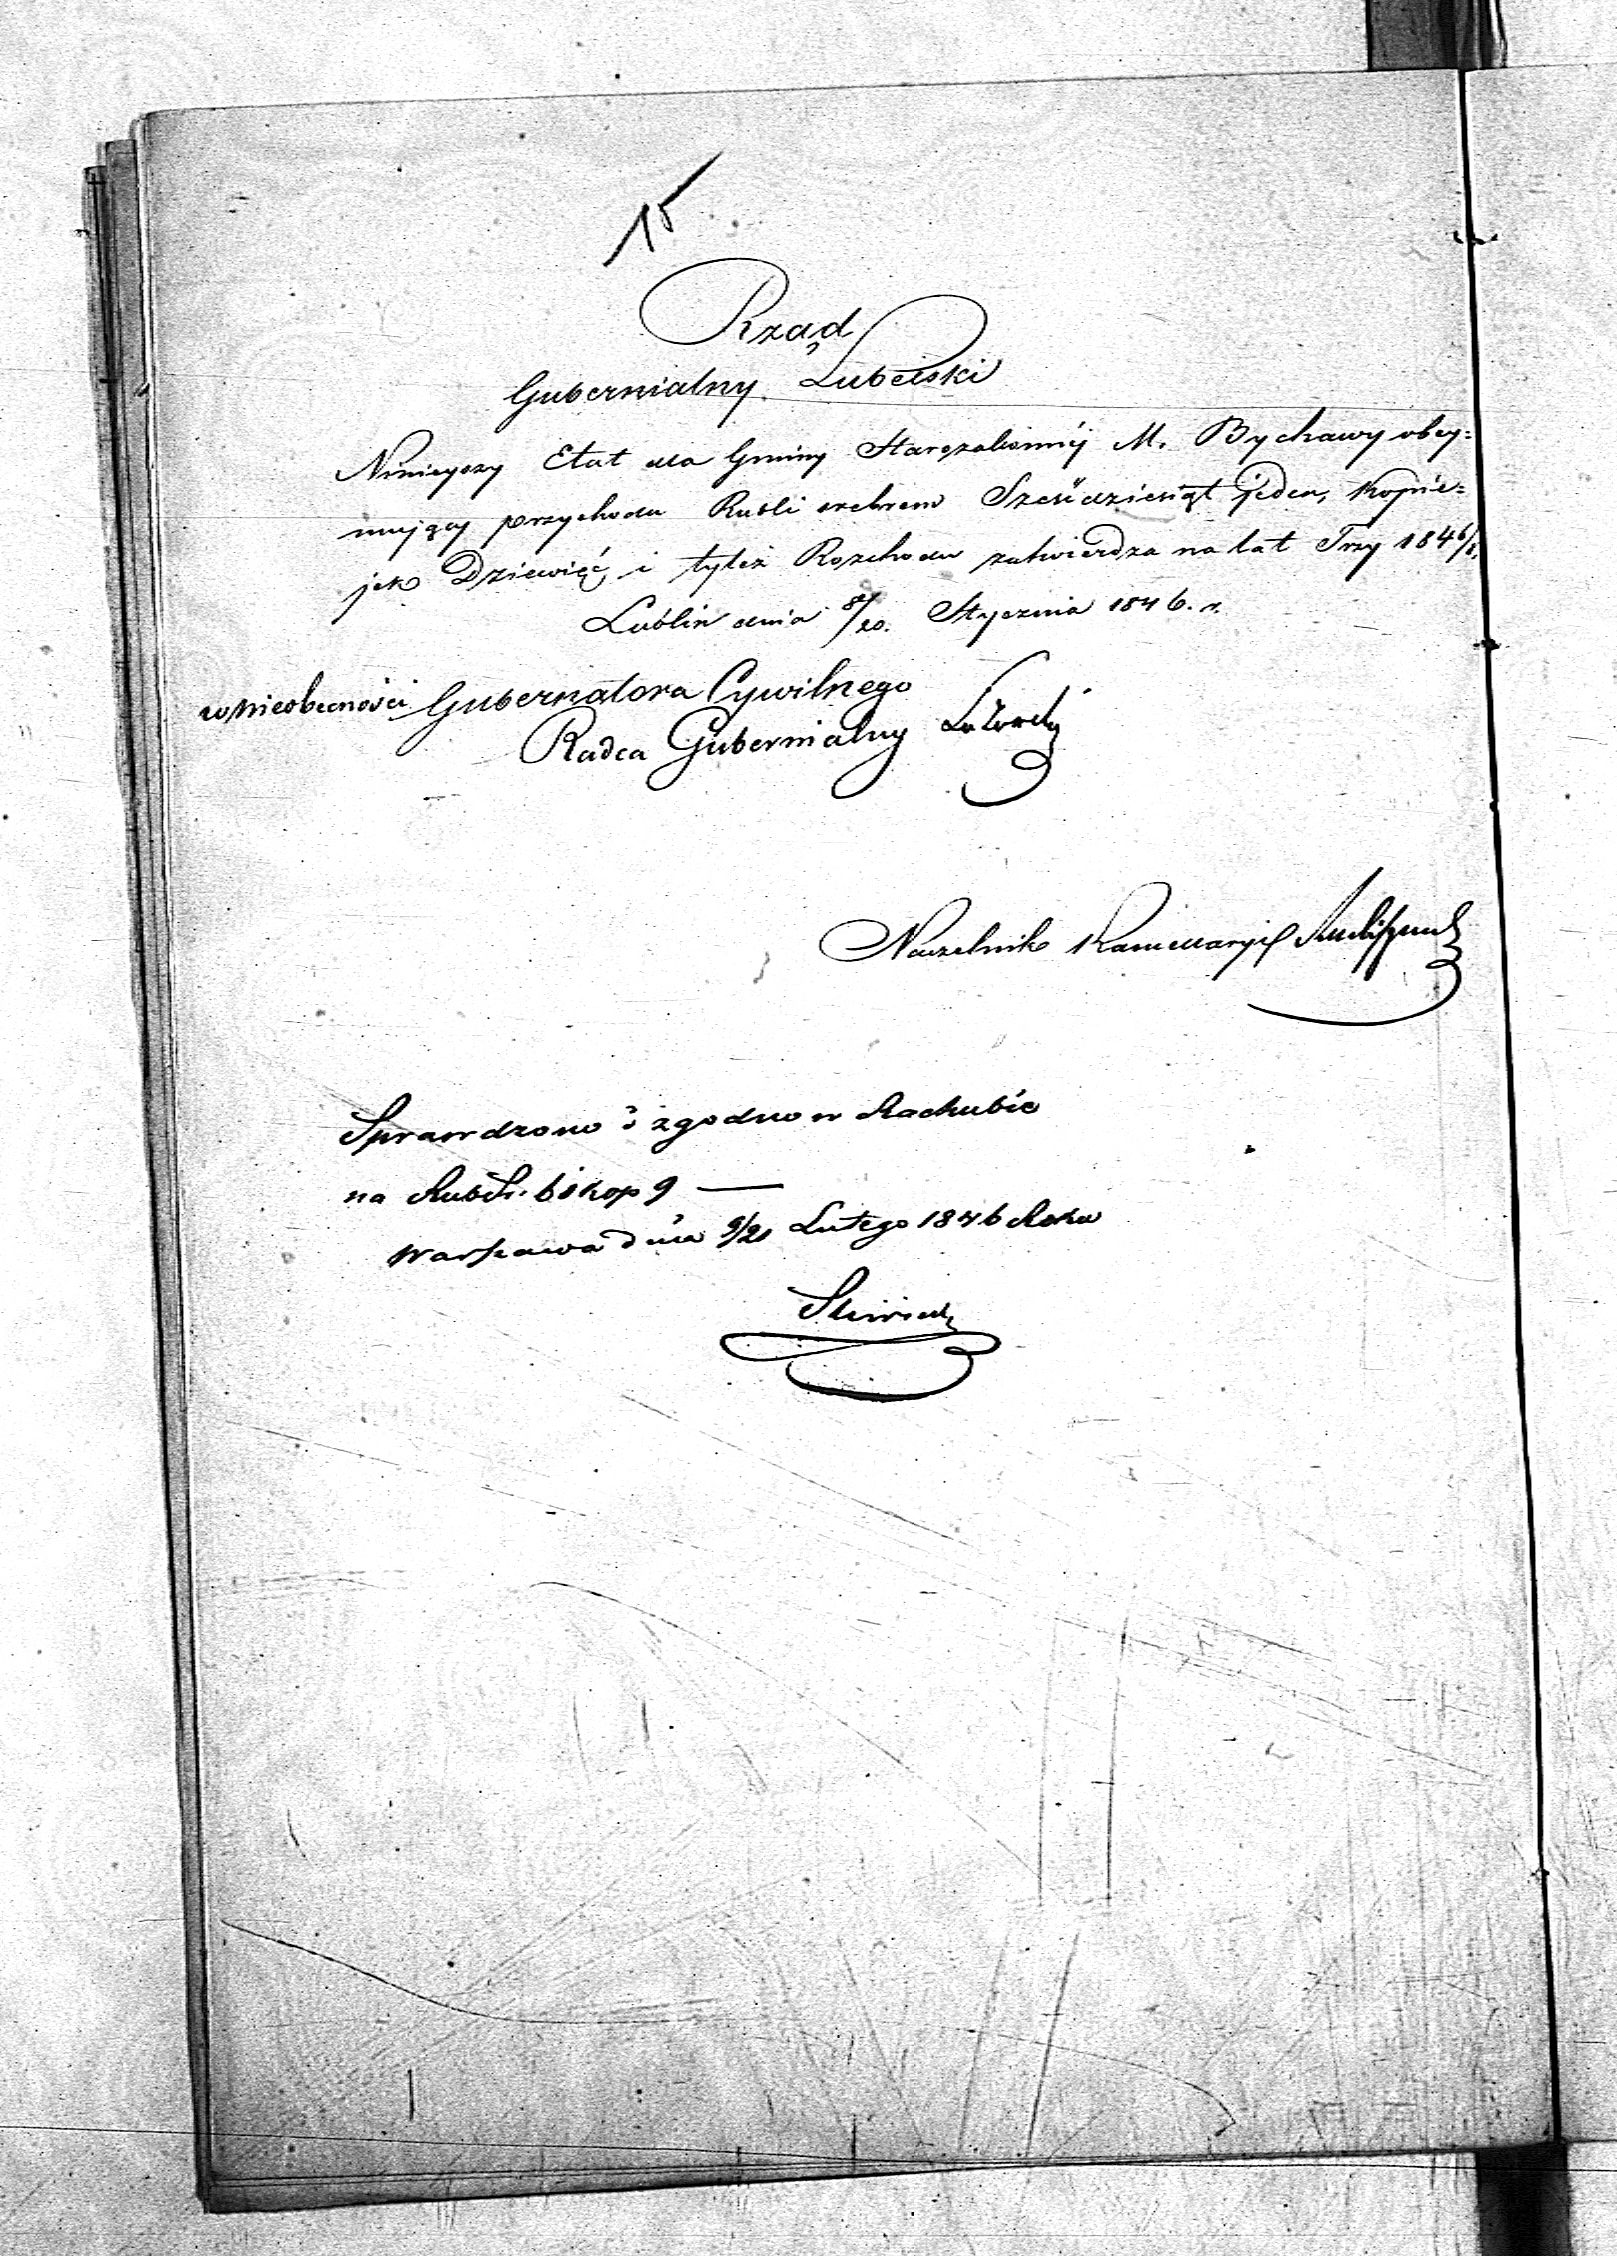 15
Rząd
Gubernialny Lubelski
Niniejszy Etat dla Gminy Starozakonnéj M. Bychawy obey=
mujący przychodu Rubli srebrem Sześćdziesiąt jeden, kopie=
jek Dziewięć, i tyleż Rozchodu zatwierdza na lat Trzy 1846/8.
Lublin dnia 8/20. Stycznia 1846. r.
w nieobecności Gubernatora Cywilnego
Radca Gubernialny
Naczelnik Kancellaryi
Sprawdzono i zgodno w Rachubie
na RubSr. 61 kop 9 —
Warszawa dnia 9/21 Lutego 1846 Roku